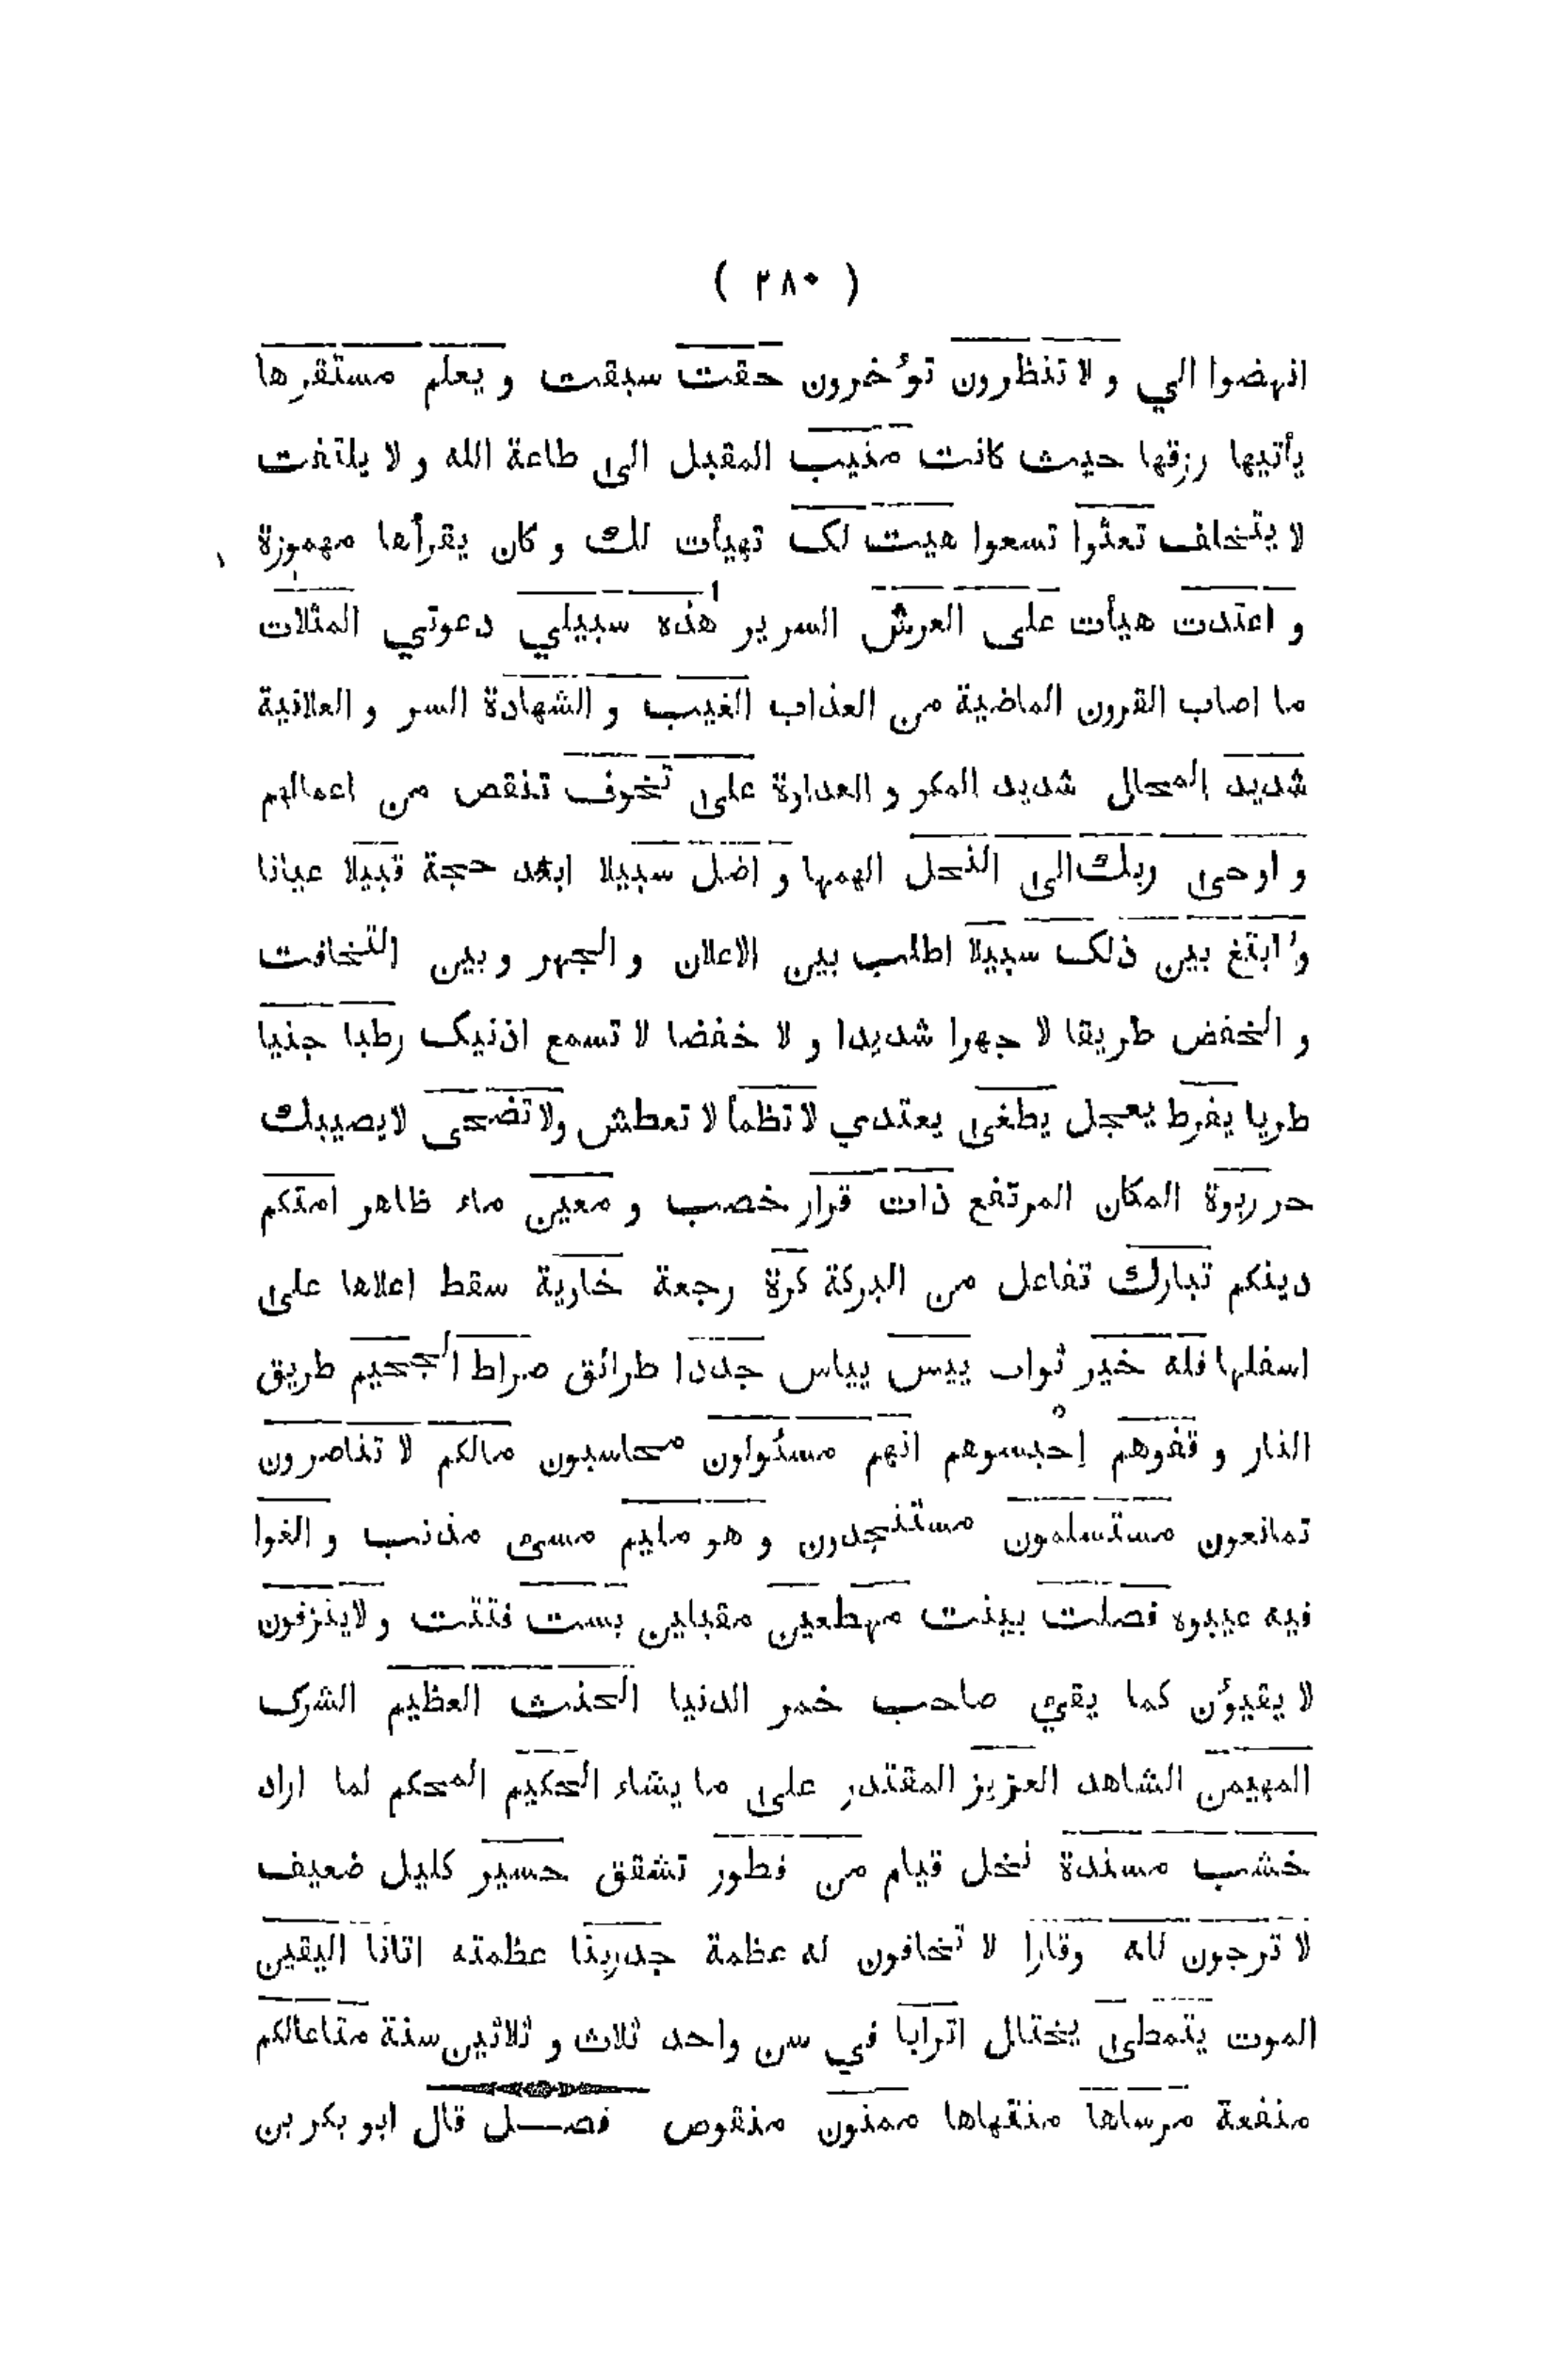 ( ٢٨٠ )
انهضوا الي و لا تنظرون تؤخرون حقت سبقت و يعلم مستقرها
يأتيها رزقها حيث كانت منيب المقبل الى طاعة الله و لا يلتفت
لا يتخلف تعثوا تسعوا هيت لك تهيأت لك و كان يقرأها مهموزة
و اعتدت هيأت على العرش السرير هذه سبيلي دعوتي المثلات
ما اصاب القرون الماضية من العذاب الغيب و الشهادة السر و العلانية
شديد المحال شديد المكر و العداوة على تخوف تنقص من اعمالهم
و اوحى ربك الى النحل الهمها و اضل سبيلا ابعد حجة قبيلا عيانا
و ابتغ بين ذلك سبيلا اطلب بين الاعلان و الجهر و بين التخافت
و الخفض طريقا لا جهرا شديدا و لا خفضا لا تسمع اذنيك رطبا جنيا
طريا يفرط يعجل يطغى يعتدي لا تظمأ لا تعطش ولا تضحى لايصيبك
حر ربوة المكان المرتفع ذات قرار خصب و معين ماء ظاهر امتكم
دينكم تبارك تفاعل من البركة كرة رجعة خاوية سقط اعلاها على
اسفلها فله خير ثواب ييس يياس جددا طرائق صراط الجحيم طريق
النار و قفوهم إحبسوهم انهم مسئولون محاسبون مالكم لا تناصرون
تمانعون مستسلمون مستنجدون و هو مليم مسىء مذنب و الغوا
فيه عيبوه فصلت بينت مهطعين مقبلين بست فتتت و لاينزفون
لا يقيؤن كما يقيء صاحب خمر الدنيا الحنث العظيم الشرك
المهيمن الشاهد العزيز المقتدر على ما يشاء الحكيم المحكم لما اراد
خشب مسندة نخل قيام من فطور تشقق حسير كليل ضعيف
لا ترجون لله وقارا لا تخافون له عظمة جد ربنا عظمته اتانا اليقين
الموت يتمطى يختال اترابا في سن واحد ثلاث و ثلاثين سنة متاعا لكم
منفعة مرساها منتهاها ممنون منقوص فصـــل قال ابو بكر بن